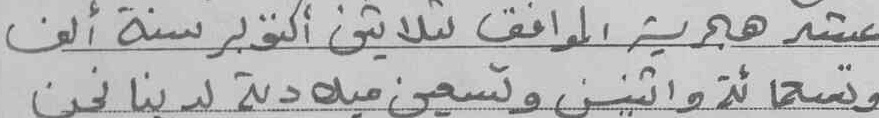 عشر هجرية الموافق لثلاثين أكتوبر سنة ألف
وتسعمائة واثنين وتسعين ميلادية لدينا نحن